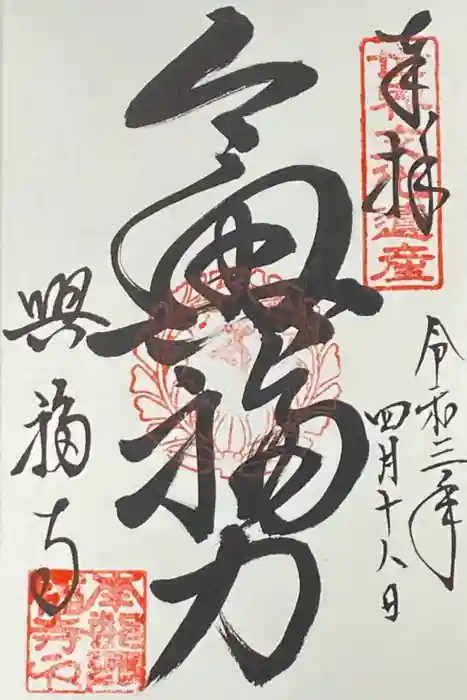 奉拝
世界文化遺産
令和三年
四月十八日
令興福力
興福寺